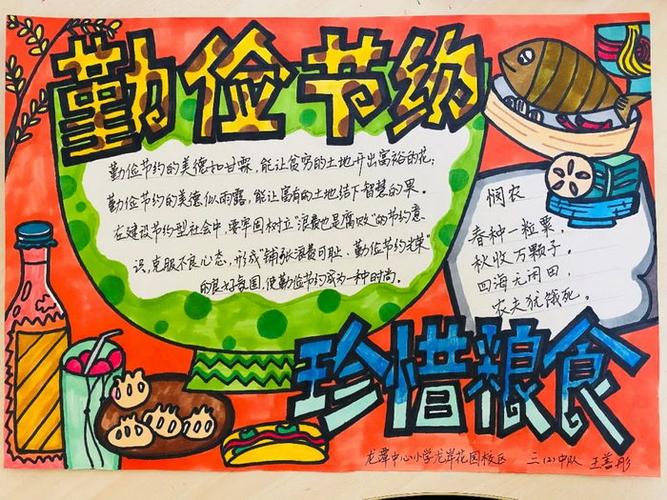 勤俭节约
勤俭节约的美德如甘霖，能让贫穷的土地开出富裕的花；
勤俭节约的美德似雨露，能让富有的土地结下智慧的果。
在建设节约型社会中，要牢固树立"浪费也是腐败"的节约意
识，克服不良心态，形成"铺张浪费可耻、勤俭节约光荣"
的良好氛围，使勤俭节约成为一种时尚。
悯农
春种一粒粟，
秋收万颗子。
四海无闲田，
农夫犹饿死。
珍惜粮食
龙潭中心小学龙岸花园校区 三(2)中队 王善彤